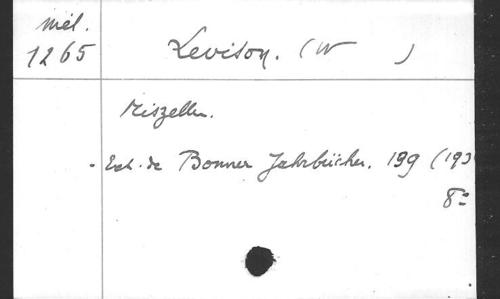 mél.
1265
Levison. (W )
Miszellen.
- Ext. de Bonner Jahrbücher. 139 (193
8º